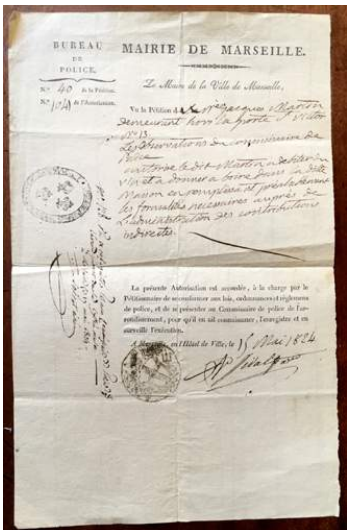 BUREAU
DE
POLICE.
N.° 40 de la Pétition.
N.° 1041 de l'Autorisation.
MAIRIE DE MARSEILLE.
Le Maire de la Ville de Marseille,
Vu la Pétition d Jacques Martin
demeurant hors la porte St Victor
N° 13.
Les observations du commissaire de
Police
autorise le dit Martin à débiter du
vin et à donner à boire dans la dite
Maison en remplissant préalablement
les formalités nécessaires auprès de
L'administration des contributions
indirectes.
La présente Autorisation est accordée, à la charge par le
Pétitionnaire de se conformer aux lois, ordonnances et réglemens
de police, et de représenter au Commissaire de police de l'ar-
rondissement, pour qu'il en soit commissaire, l'enregistre et en
surveille l'exécution.
A Marseille, en l'Hôtel de Ville, le 15 Mai 1824